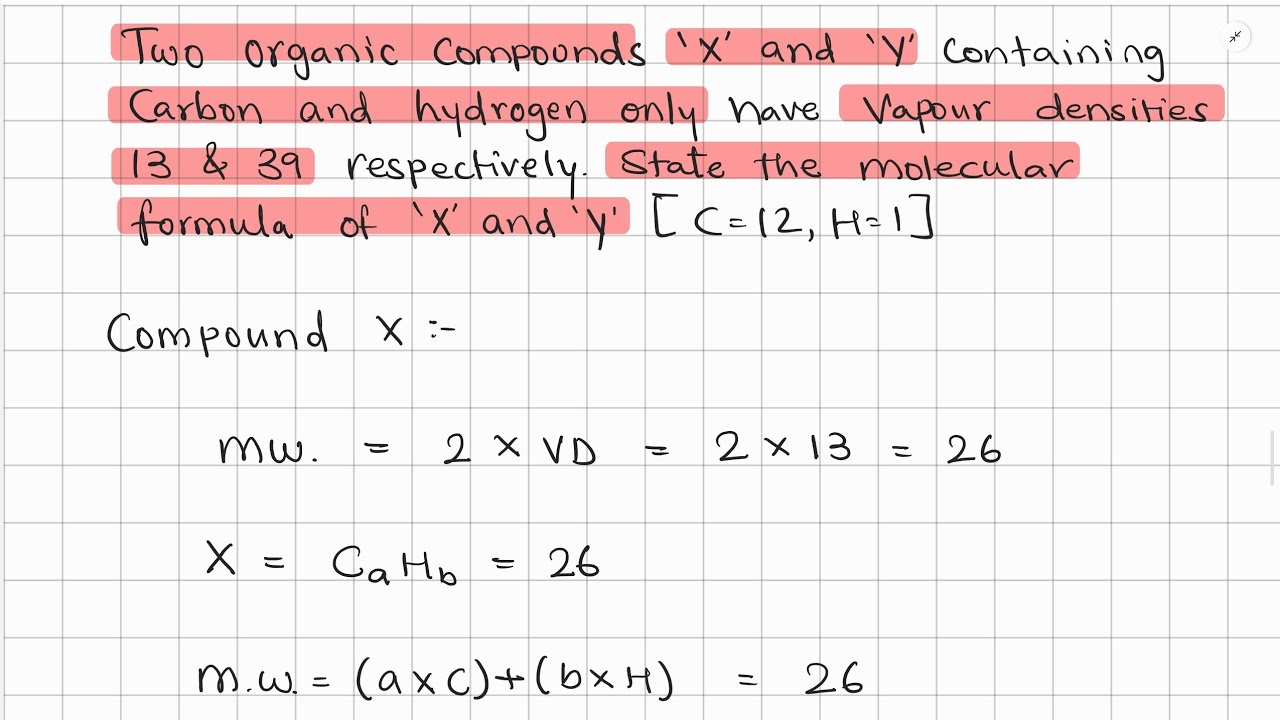 Two organic Compounds 'X' and 'Y' containing
Carbon and hydrogen only have Vapour densities
13 & 39 respectively. State the molecular
formula of 'X' and 'Y' [C=12, H=1]
Compound X :-
MW. = 2 × VD = 2 × 13 = 26
X = CaHb = 26
m.w. = (a×C)+(b×H) = 26